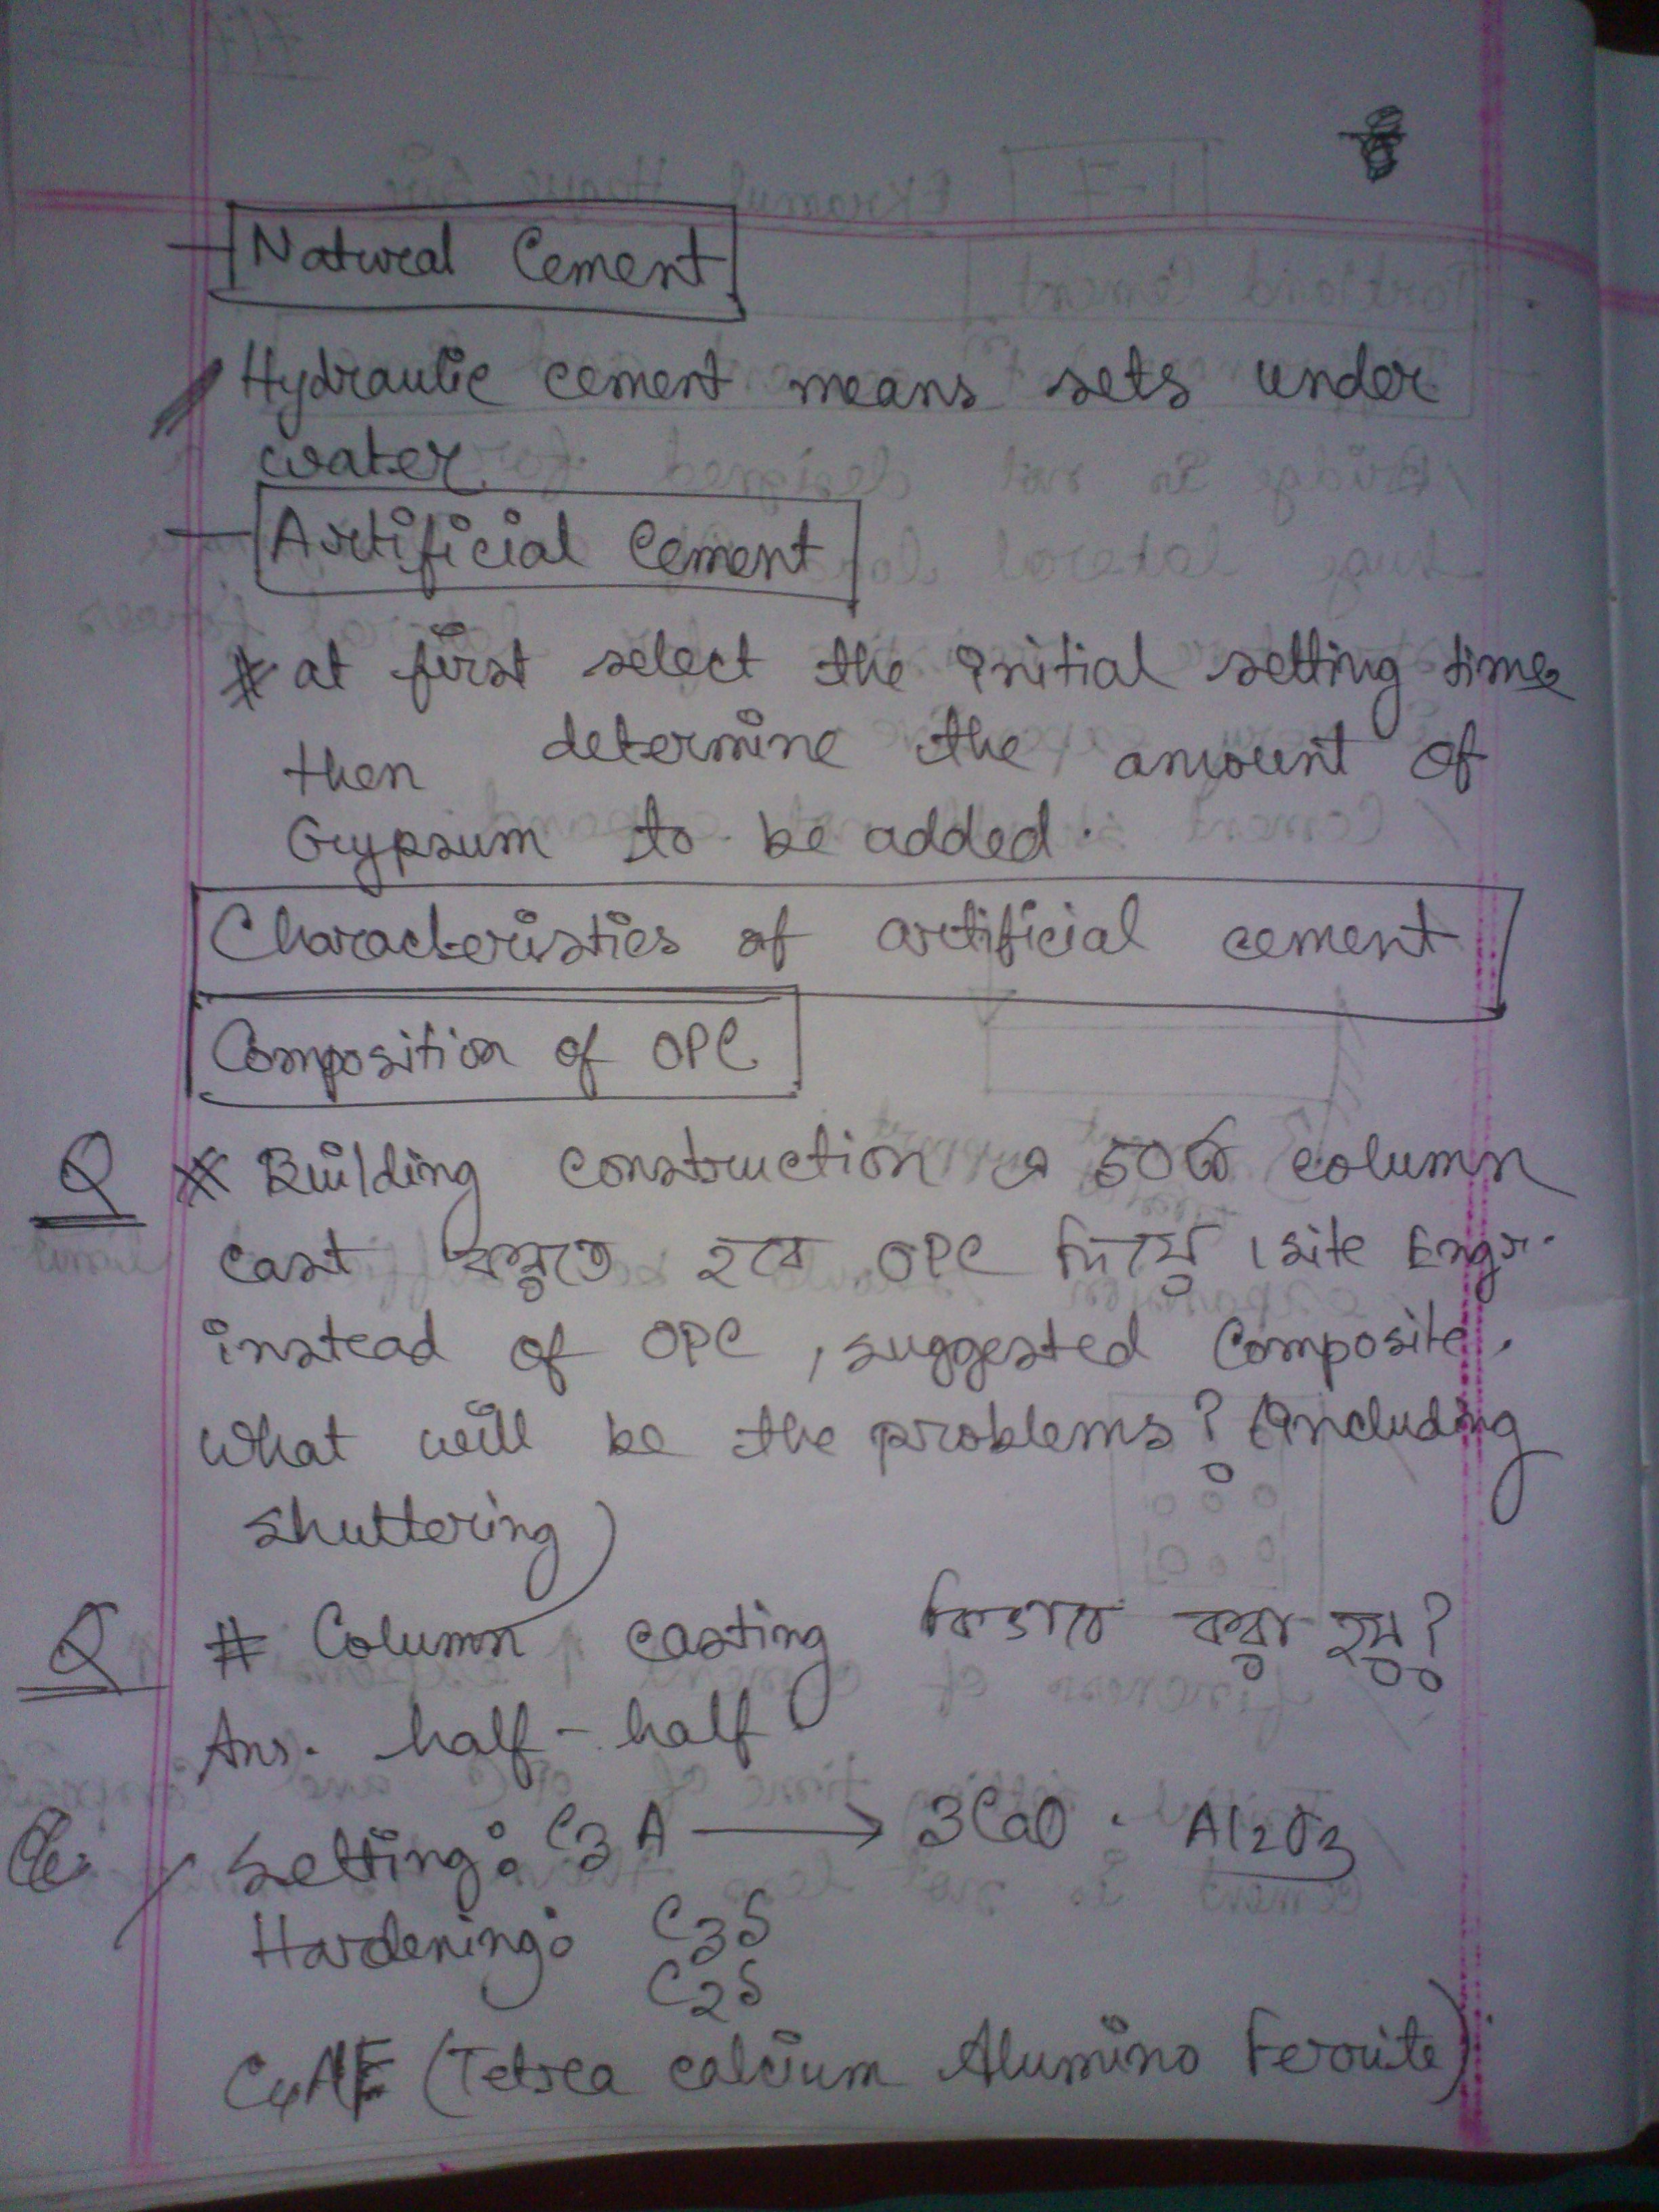 Natural Cement
Hydraulic cement means sets under
water
Artificial Cement
# at first select the initial setting time
then determine the amount of
Gypsum to be added.
Characteristics of artificial cement
Composition of OPC
Q # Building construction এ 50টি column
cast করতে হবে OPC দিয়ে। site Engr.
instead of OPC, suggested Composite.
What will be the problems? (Including
shuttering)
Q # Column casting কিভাবে করা হয়?
Ans. half-half
Setting: C3A → 3CaO . Al2O3
Hardening: C3S
C2S
C4AF (Tetra calcium Alumino Ferrite)